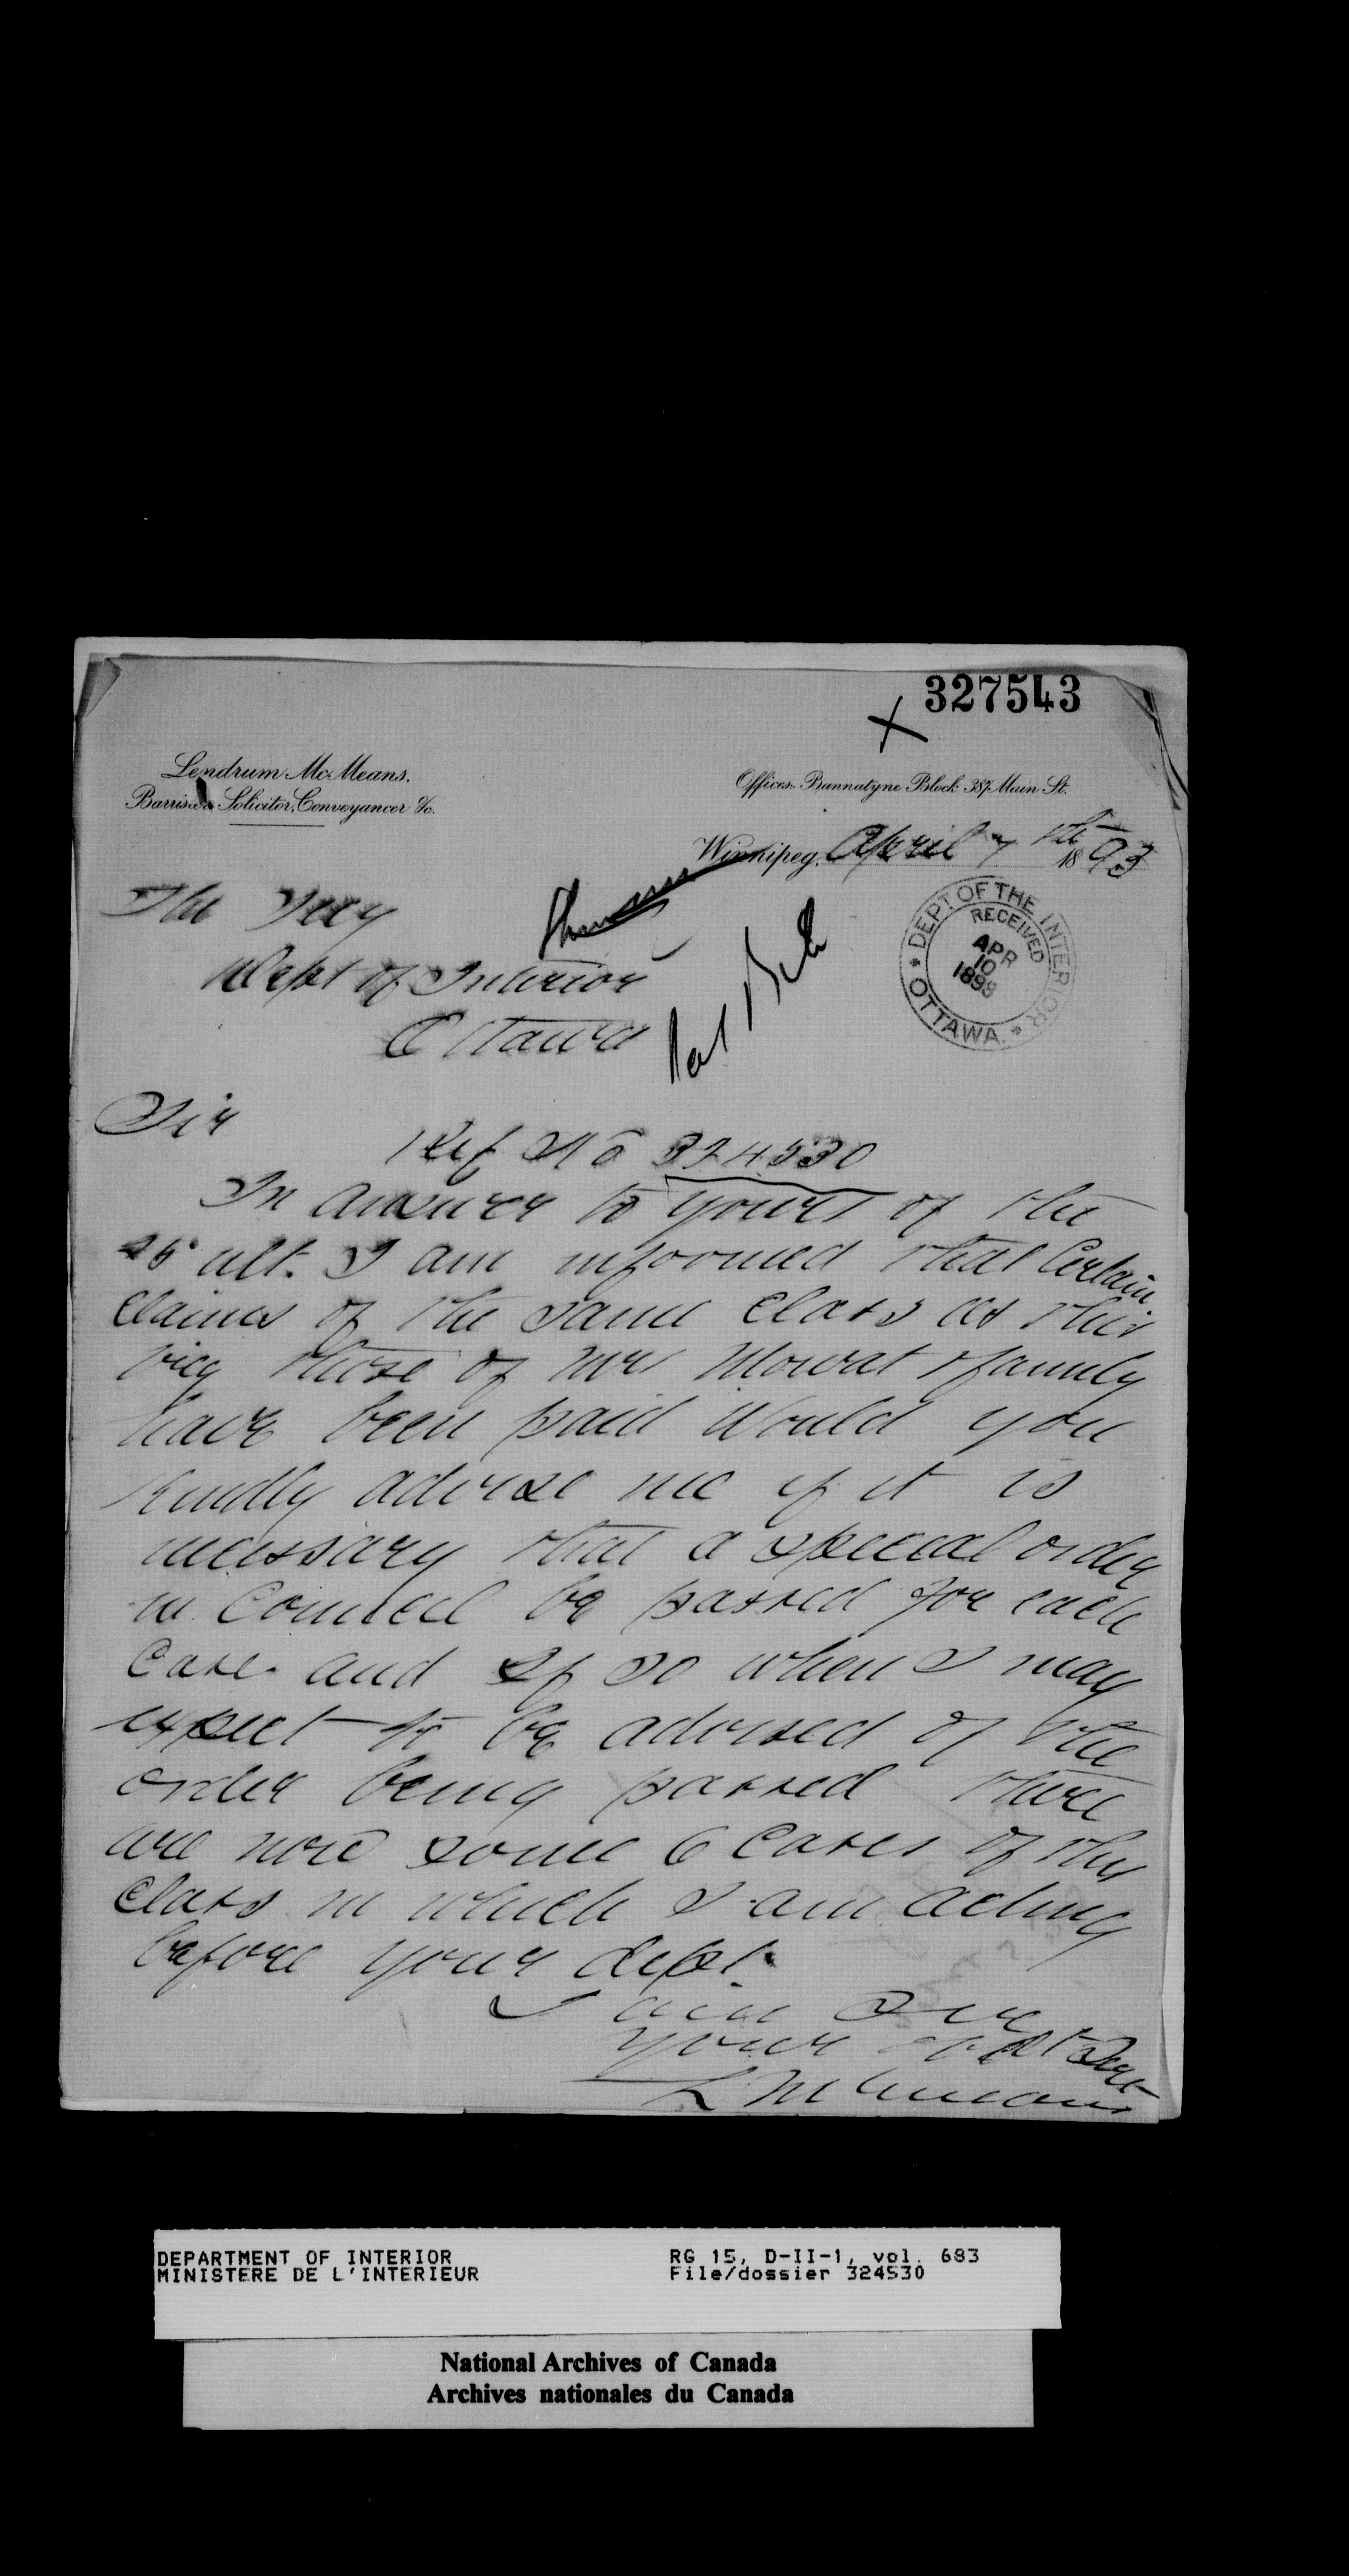 327543
Lendrum McMeans.
Barrister Solicitor, Conveyancer &c.
Offices. Bannatyne Block 387 Main St.
Winnipeg, April 7th 1893
The Secy
Dept of Interior
Ottawa
DEPT OF THE INTERIOR
RECEIVED
APR
10
1893
OTTAWA
Sir
Ref No 324530
In answer to yours of the
25 ult. I am informed that Certain
Claims of the same Class as this
viz those of Mr Mowat & family
have been paid Would you
kindly advise me if it is
necessary that a special order
in Council be passed for each
Case and If so when I may
expect to be advised of the
order being passed there
are now some 6 Cases of this
Class in which I am acting
before your dept.
I am Sir
your obdt Servt
L McMeans
DEPARTMENT OF INTERIOR
MINISTERE DE L'INTERIEUR
RG 15, D-II-1, vol. 683
File/dossier 324530
National Archives of Canada
Archives nationales du Canada